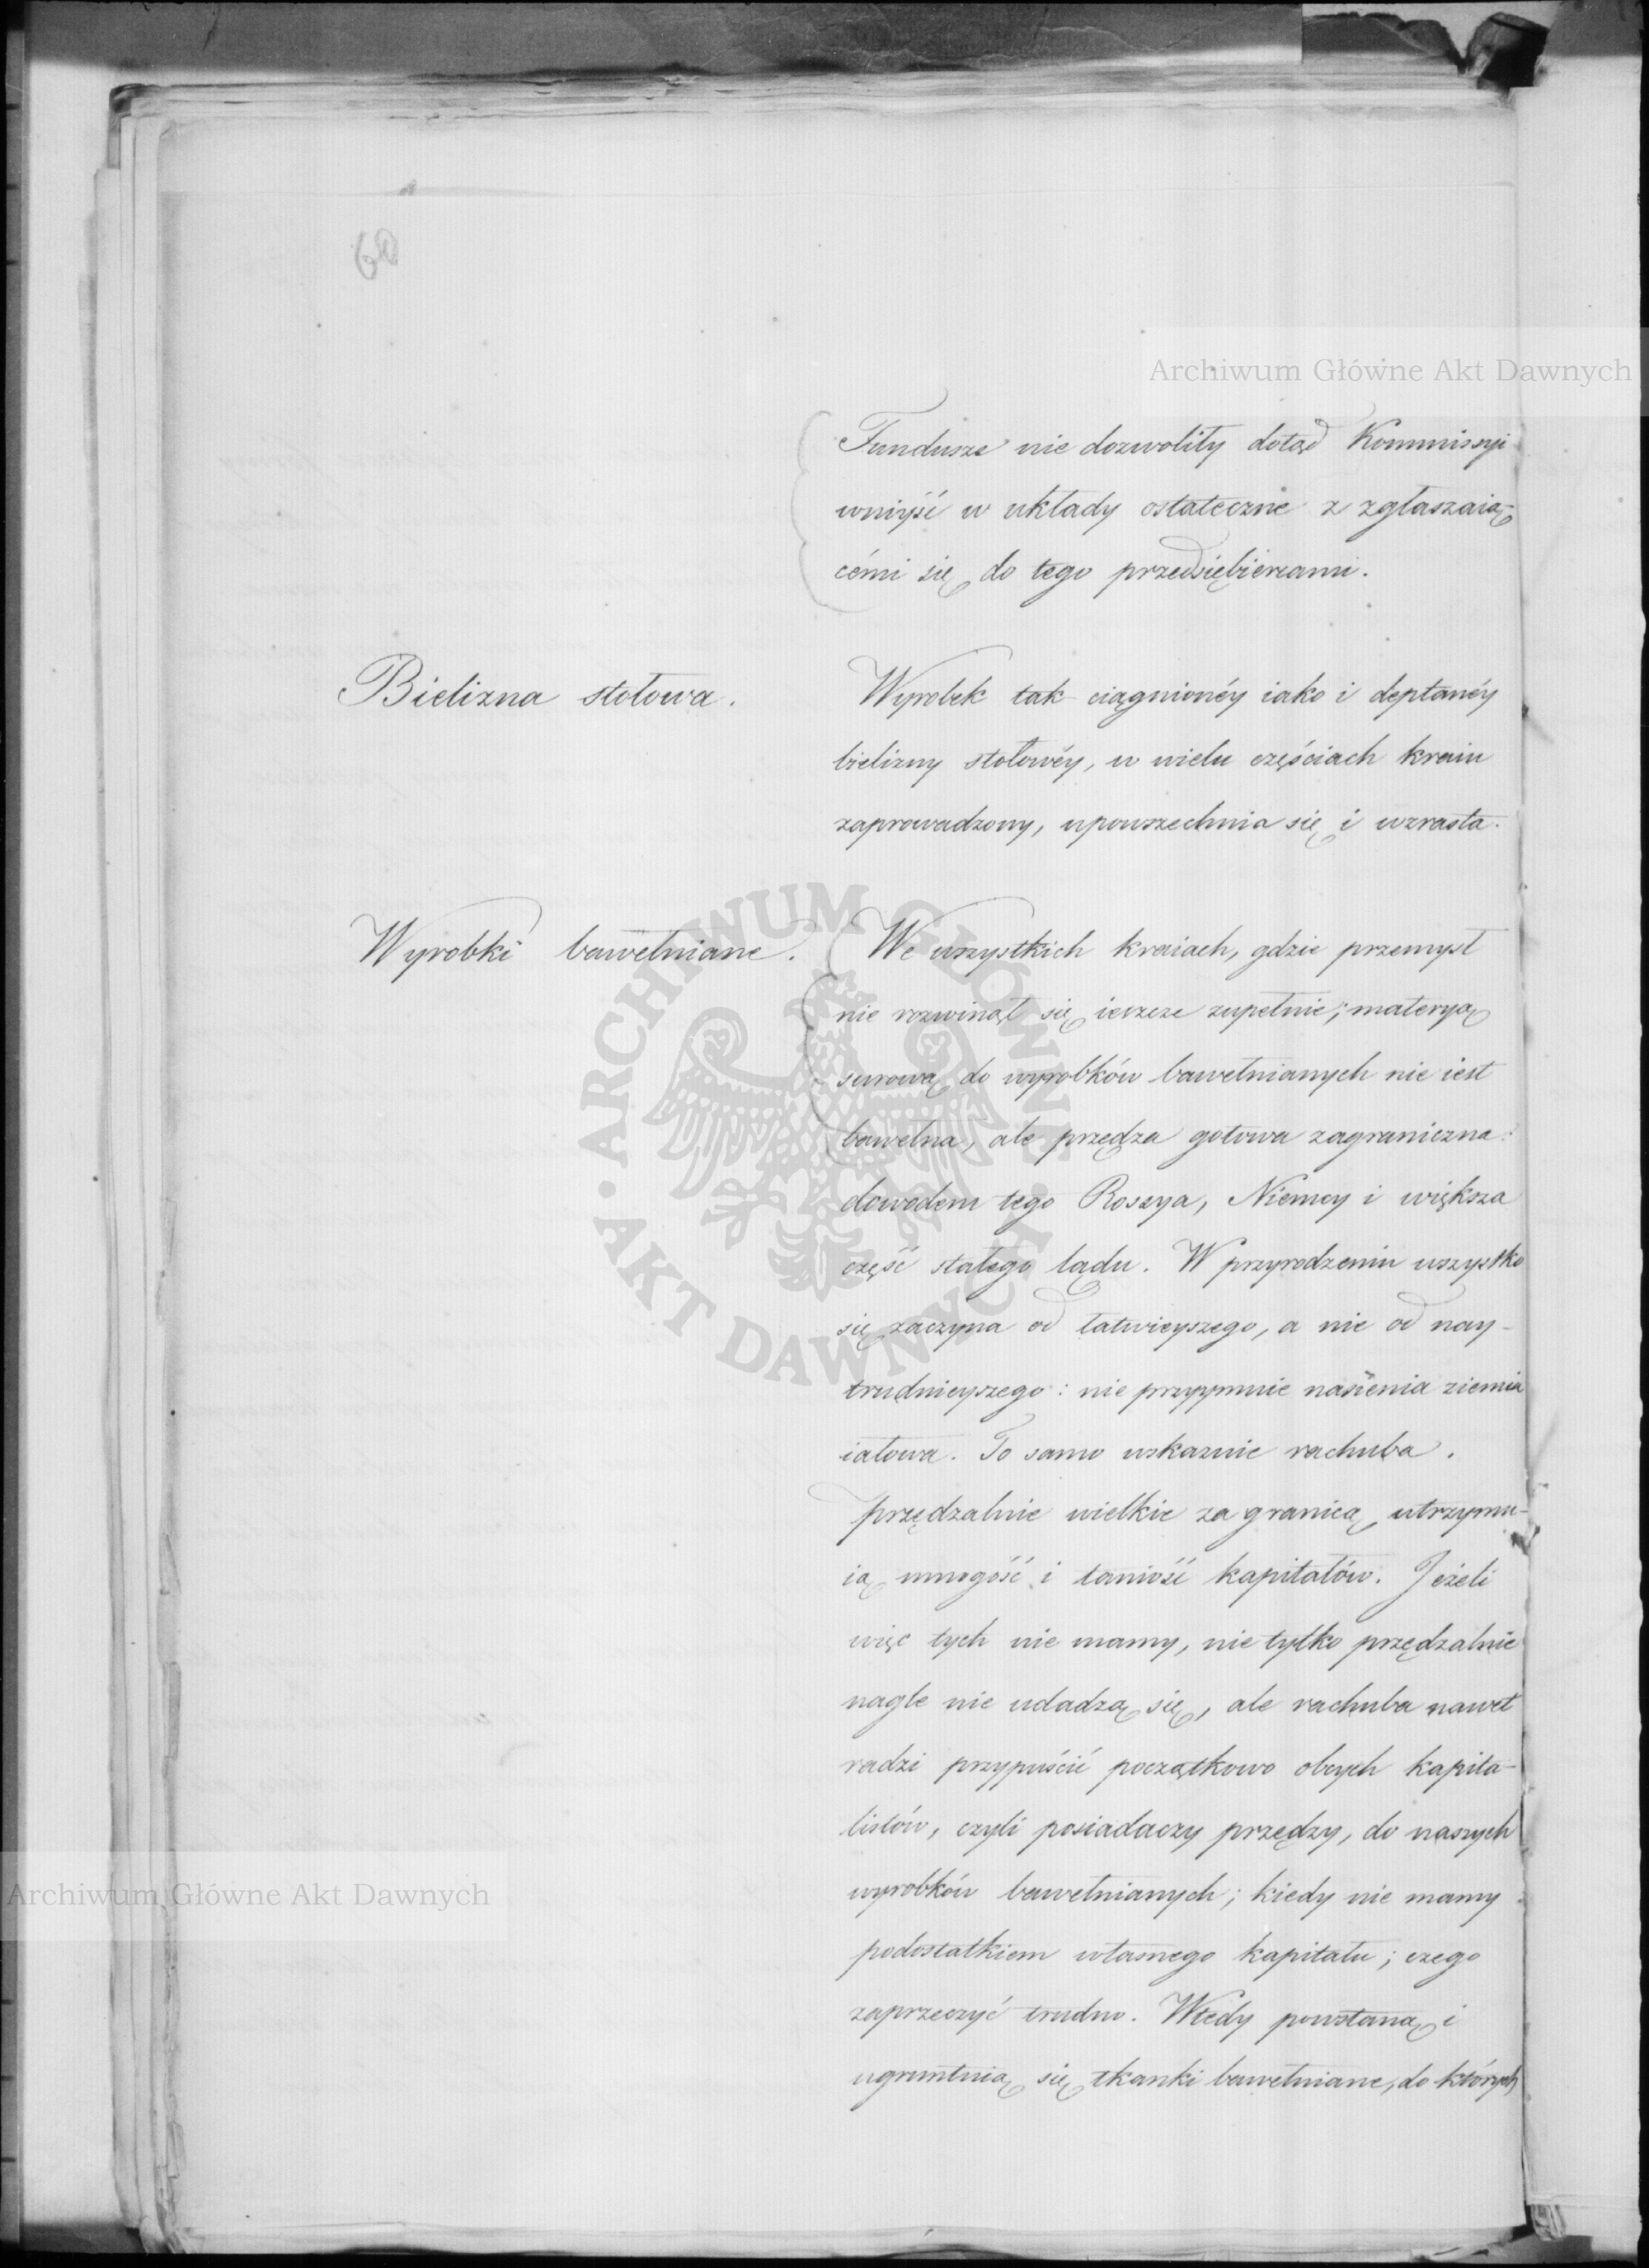 60
Archiwum Główne Akt Dawnych
Fundusze nie dozwoliły dotąd Kommissyi
wniyść w układy ostateczne z zgłaszaią-
cémi się do tego przedsiębiercami.
Bielizna stołowa.
Wyrobek tak ciągnionéy iako i deptanéy
bielizny stołowéy, w wielu częściach kraiu
zaprowadzony, upowszechnia się i wzrasta.
Wyrobki bawełniane.
We wszystkich kraiach, gdzie przemysł
nie rozwinął się ieszcze zupełnie; materyą
surową do wyrobków bawełnianych nie iest
bawełna, ale przędza gotowa zagraniczna:
dowodem tego Rossya, Niemcy i większa
część stałego lądu. W przyrodzeniu wszystko
się zaczyna od łatwieyszego, a nie od nay-
trudnieyszego: nie przyymuie nasienia ziemia
iałowa. To samo wskazuie rachuba.
przędzalnie wielkie za granicą utrzymu-
ią mnogość i taniość kapitałów. Jeżeli
więc tych nie mamy, nie tylko przędzalnie
nagle nie udadzą się, ale rachuba nawet
radzi przypuścić początkowo obcych kapita-
listów, czyli posiadaczy przędzy, do naszych
wyrobków bawełnianych; kiedy nie mamy
podostatkiem własnego kapitału; czego
zaprzeczyć trudno. Wtedy powstaną i
ugruntuią się tkanki bawełniane, do których
ARCHIWUM GŁÓWNE · AKT DAWNYCH ·
Archiwum Główne Akt Dawnych